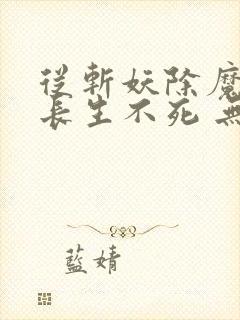 從斬妖除魔
長生不死 無
藍婧